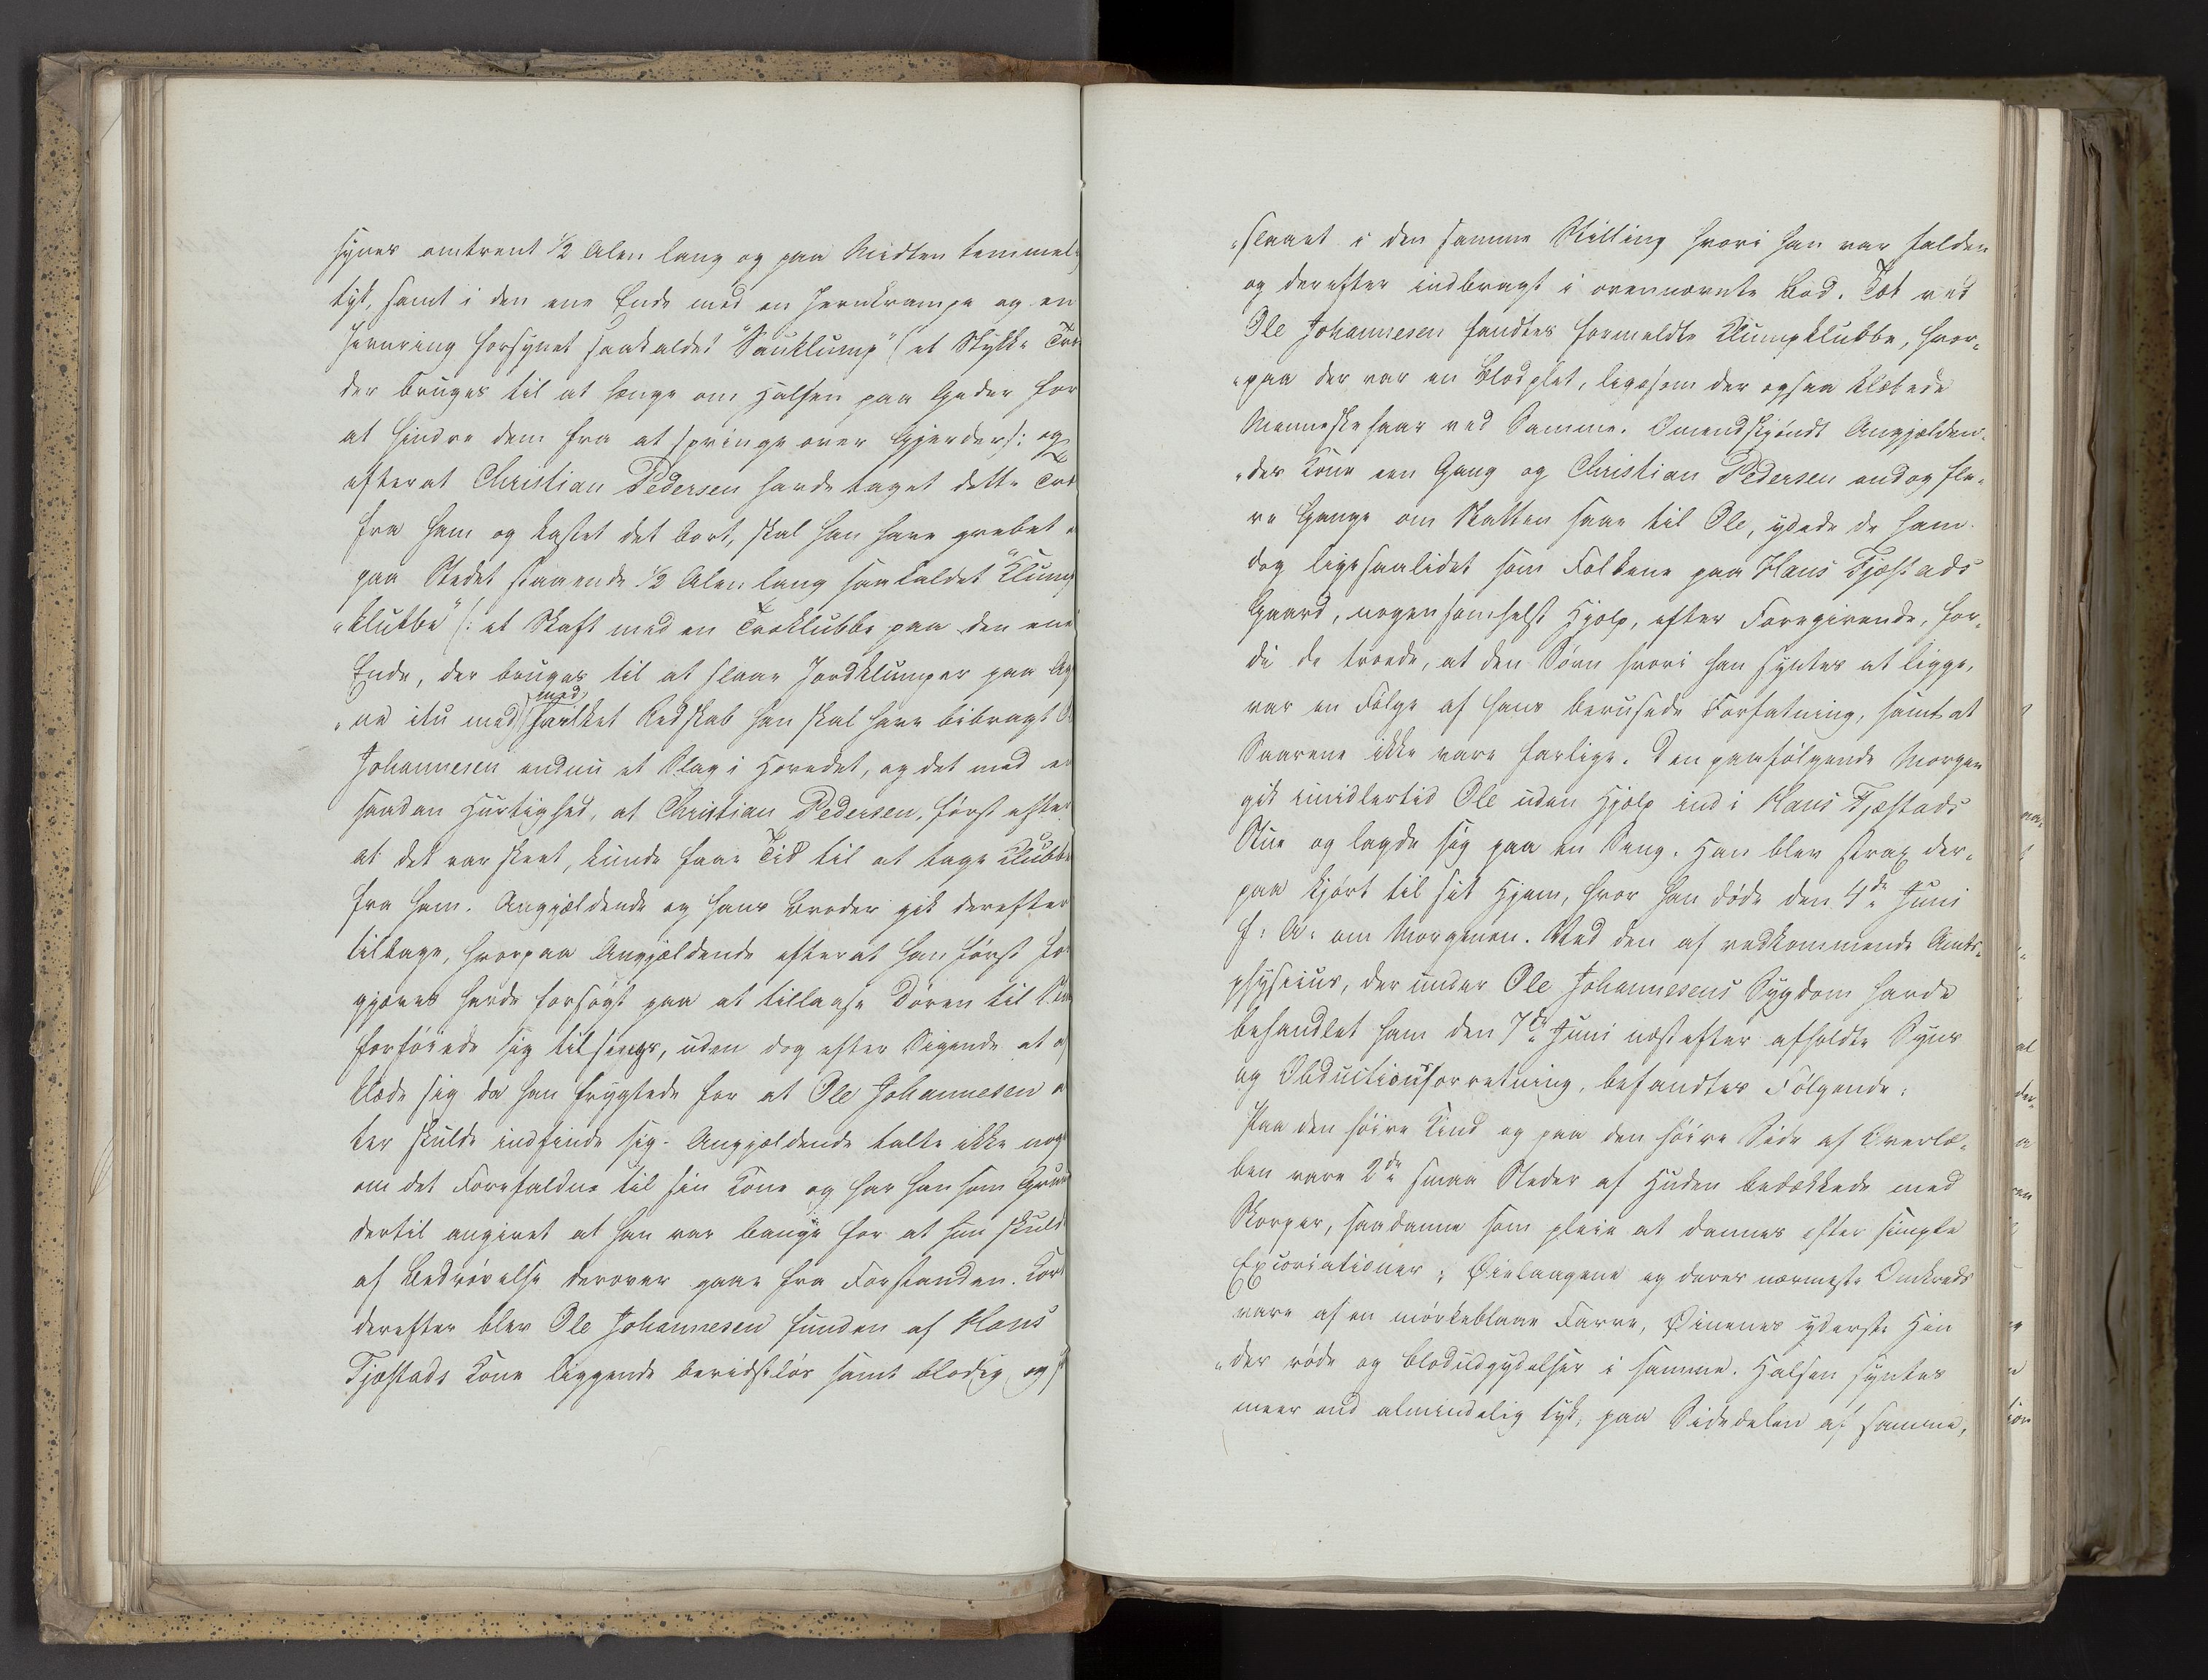 synes omtrent 1/2 Alen lang og paa Midten temmel
tyk, samt i den ene Ende med en Jernkrampe og en
Jernring forsynet saakaldet "Sauklump" (et Stykke Træ
der bruges til at hænge om Halsen paa Geder for
at hindre dem fra at springe over Gjerder): og
efterat Christian Pedersen havde taget dette Træ
fra ham og kastet det bort, skal han have grebet e
paa Stedet staaende 1/2 Alen lang saakaldet "Klump
"klubbe" (: et Skaft med en Træklubbe paa den ene
Ende, der bruges til at slaae Jordklumper paa Ag
"re itu med) med hvilket Redskab han skal have bibragt O
Johannesen endnu et Slag i Hovedet, og det med en
saadan Hurtighed, at Christian Pedersen, først efter
at det var skeet, kunde faae Tid til at tage Klubb
fra ham. Angjældende og hans Broder gik derefter
tilbage, hvorpaa Angjældende efterat han først for
gjæves havde forsøgt paa at tillaase Døren til
forføiede sig tilsengs, uden dog efter Sigende at a
klæde sig da han frygtede for at Ole Johannesen a
ter skulde indfinde sig. Angjældende talte ikke nog
om det Forefaldne til sin Kone og har han som Grun
dertil angivet at han var bange for at hun skuld
af Bedrøvelse derover gaae fra Forstanden. Kor
derefter blev Ole Johannesen funden af Hans
Tjøstads Kone liggende bevidstløs samt blodig og
"slaaet i den samme Stilling hvori han var falden
og derefter indbragt i ovennævnte Bod. Tæt ved
Ole Johannesen fandtes formeldte Klumpklubbe, hvor"
"paa der var en Blodplet, ligesom der ogsaa klæbede
Menneskehaar ved Samme. Omendskjøndt Angjælden"
"des Kone een Gang og Christian Pedersen endog fle"
re Gange om Natten saae til Ole, ydede de ham
dog ligesaalidet som Folkene paa Hans Tjøstads
Gaard, nogensomhelst Hjælp, efter Foregivende, for"
di de troede, at den Søvn hvori han syntes at ligge,
var en Følge af hans berusede Forfatning, samt at
Saarene ikke vare farlige. Den paafølgende Morgen
gik imidlertid Ole uden Hjælp ind i Hans Tjøstads
Stue og lagde sig paa en Seng. Han blev strax der"
paa kjørt til sit Hjem, hvor han døde den 4de Juni
f: A: om Morgenen. Ved den af vedkommende Amts"
physicus, der under Ole Johannesens Sygdom havde
behandlet ham den 7de Juni næstefter afholdte Syns
og Obductionsforretning, befandtes Følgende:
Paa den høire Kind og paa den høire Side af Overlæ"
ben vare 2de smaa Steder af Huden bedækkede med
Skorper, saadanne som pleie at dannes efter simple
Excoriationer; Øielaagene og deres nærmeste Omkreds
vare af en mørkeblaae Farve, Øinenes yderste Hin
"der røde og Blodudgydelser i samme. Halsen syntes
meer end almindelig tyk, paa Sidedelen af samme,